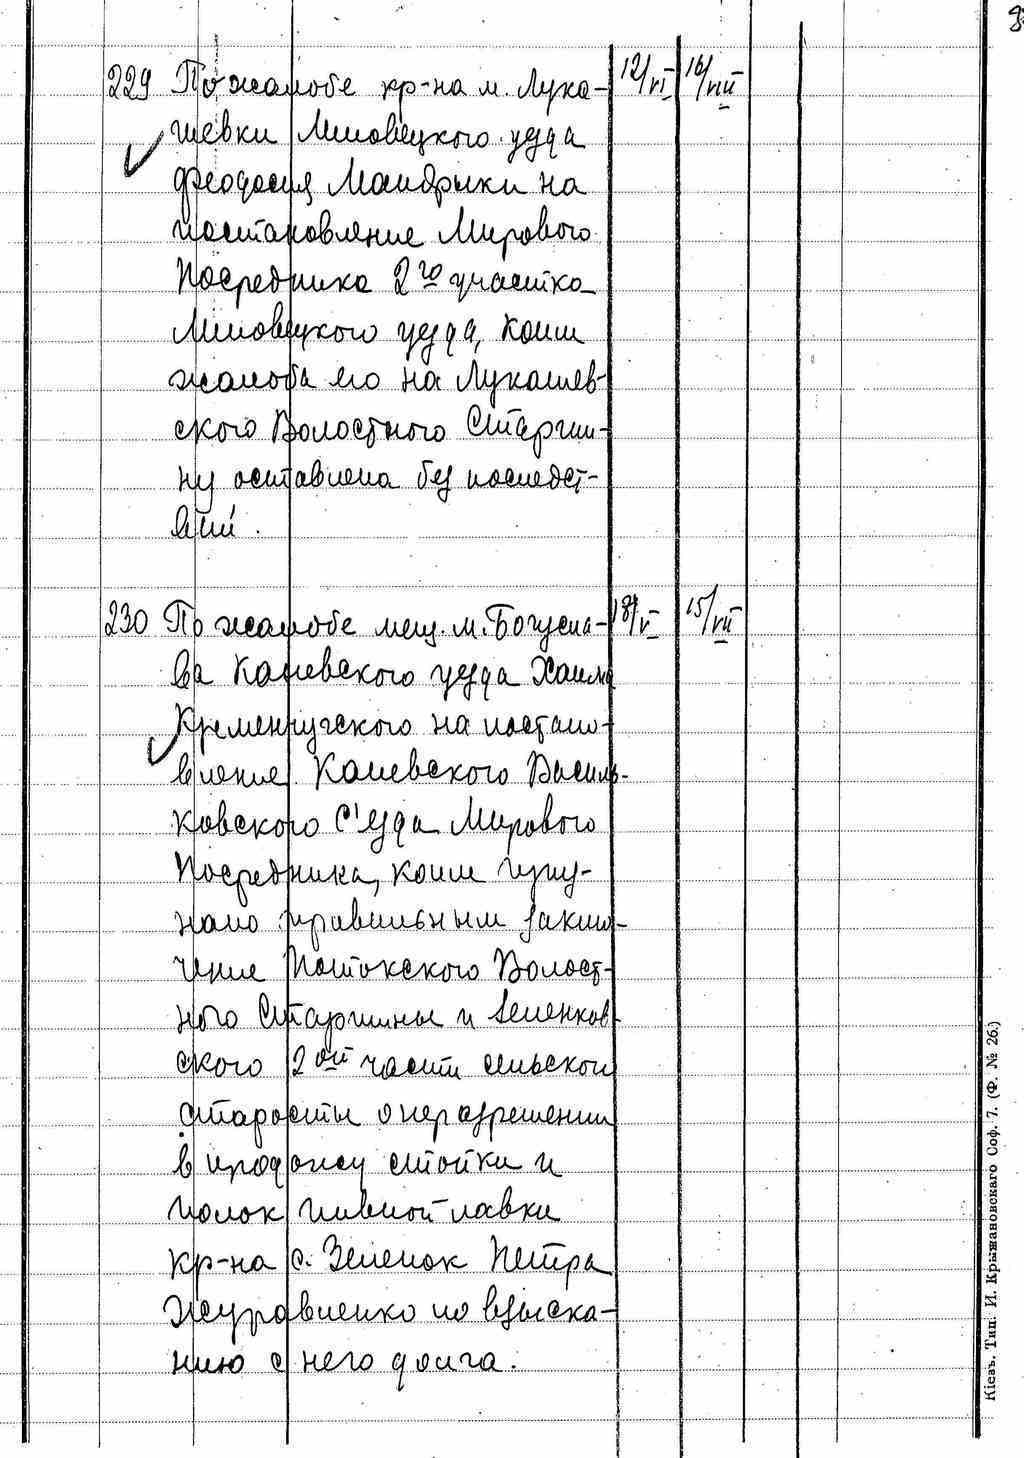 229 По жалобе кр-на м. Лука- 12/VI 16/VIII
шевки Липовецкого уезда
Феодосия Мандрыки на
постановление Мирового
Посредника 2го участка
Липовецкого уезда, коим
жалоба его на Лукашев-
ского Волостного Старши-
ну оставлена без последст-
вий.
230 По жалобе мещ. м. Богусла- 18/V 15/VII
ва Каневского уезда Хаима
Кременчугского на постано-
вление Каневского Василь-
ковского С'езда Мирового
Посредника, коим призу-
нано правильным заклю-
чение Потокского Волост-
ного Старшины и Зеленков-
ского 2ой части сельского
старосты о неразрешении
в продажу стойки и
полок пивной лавки
кр-на с. Зеленок Петра
Журавленко по взыска-
нию с него долга.
Кіевъ. Тип. И. Крыжановскаго Соф. 7. (Ф. № 26.)